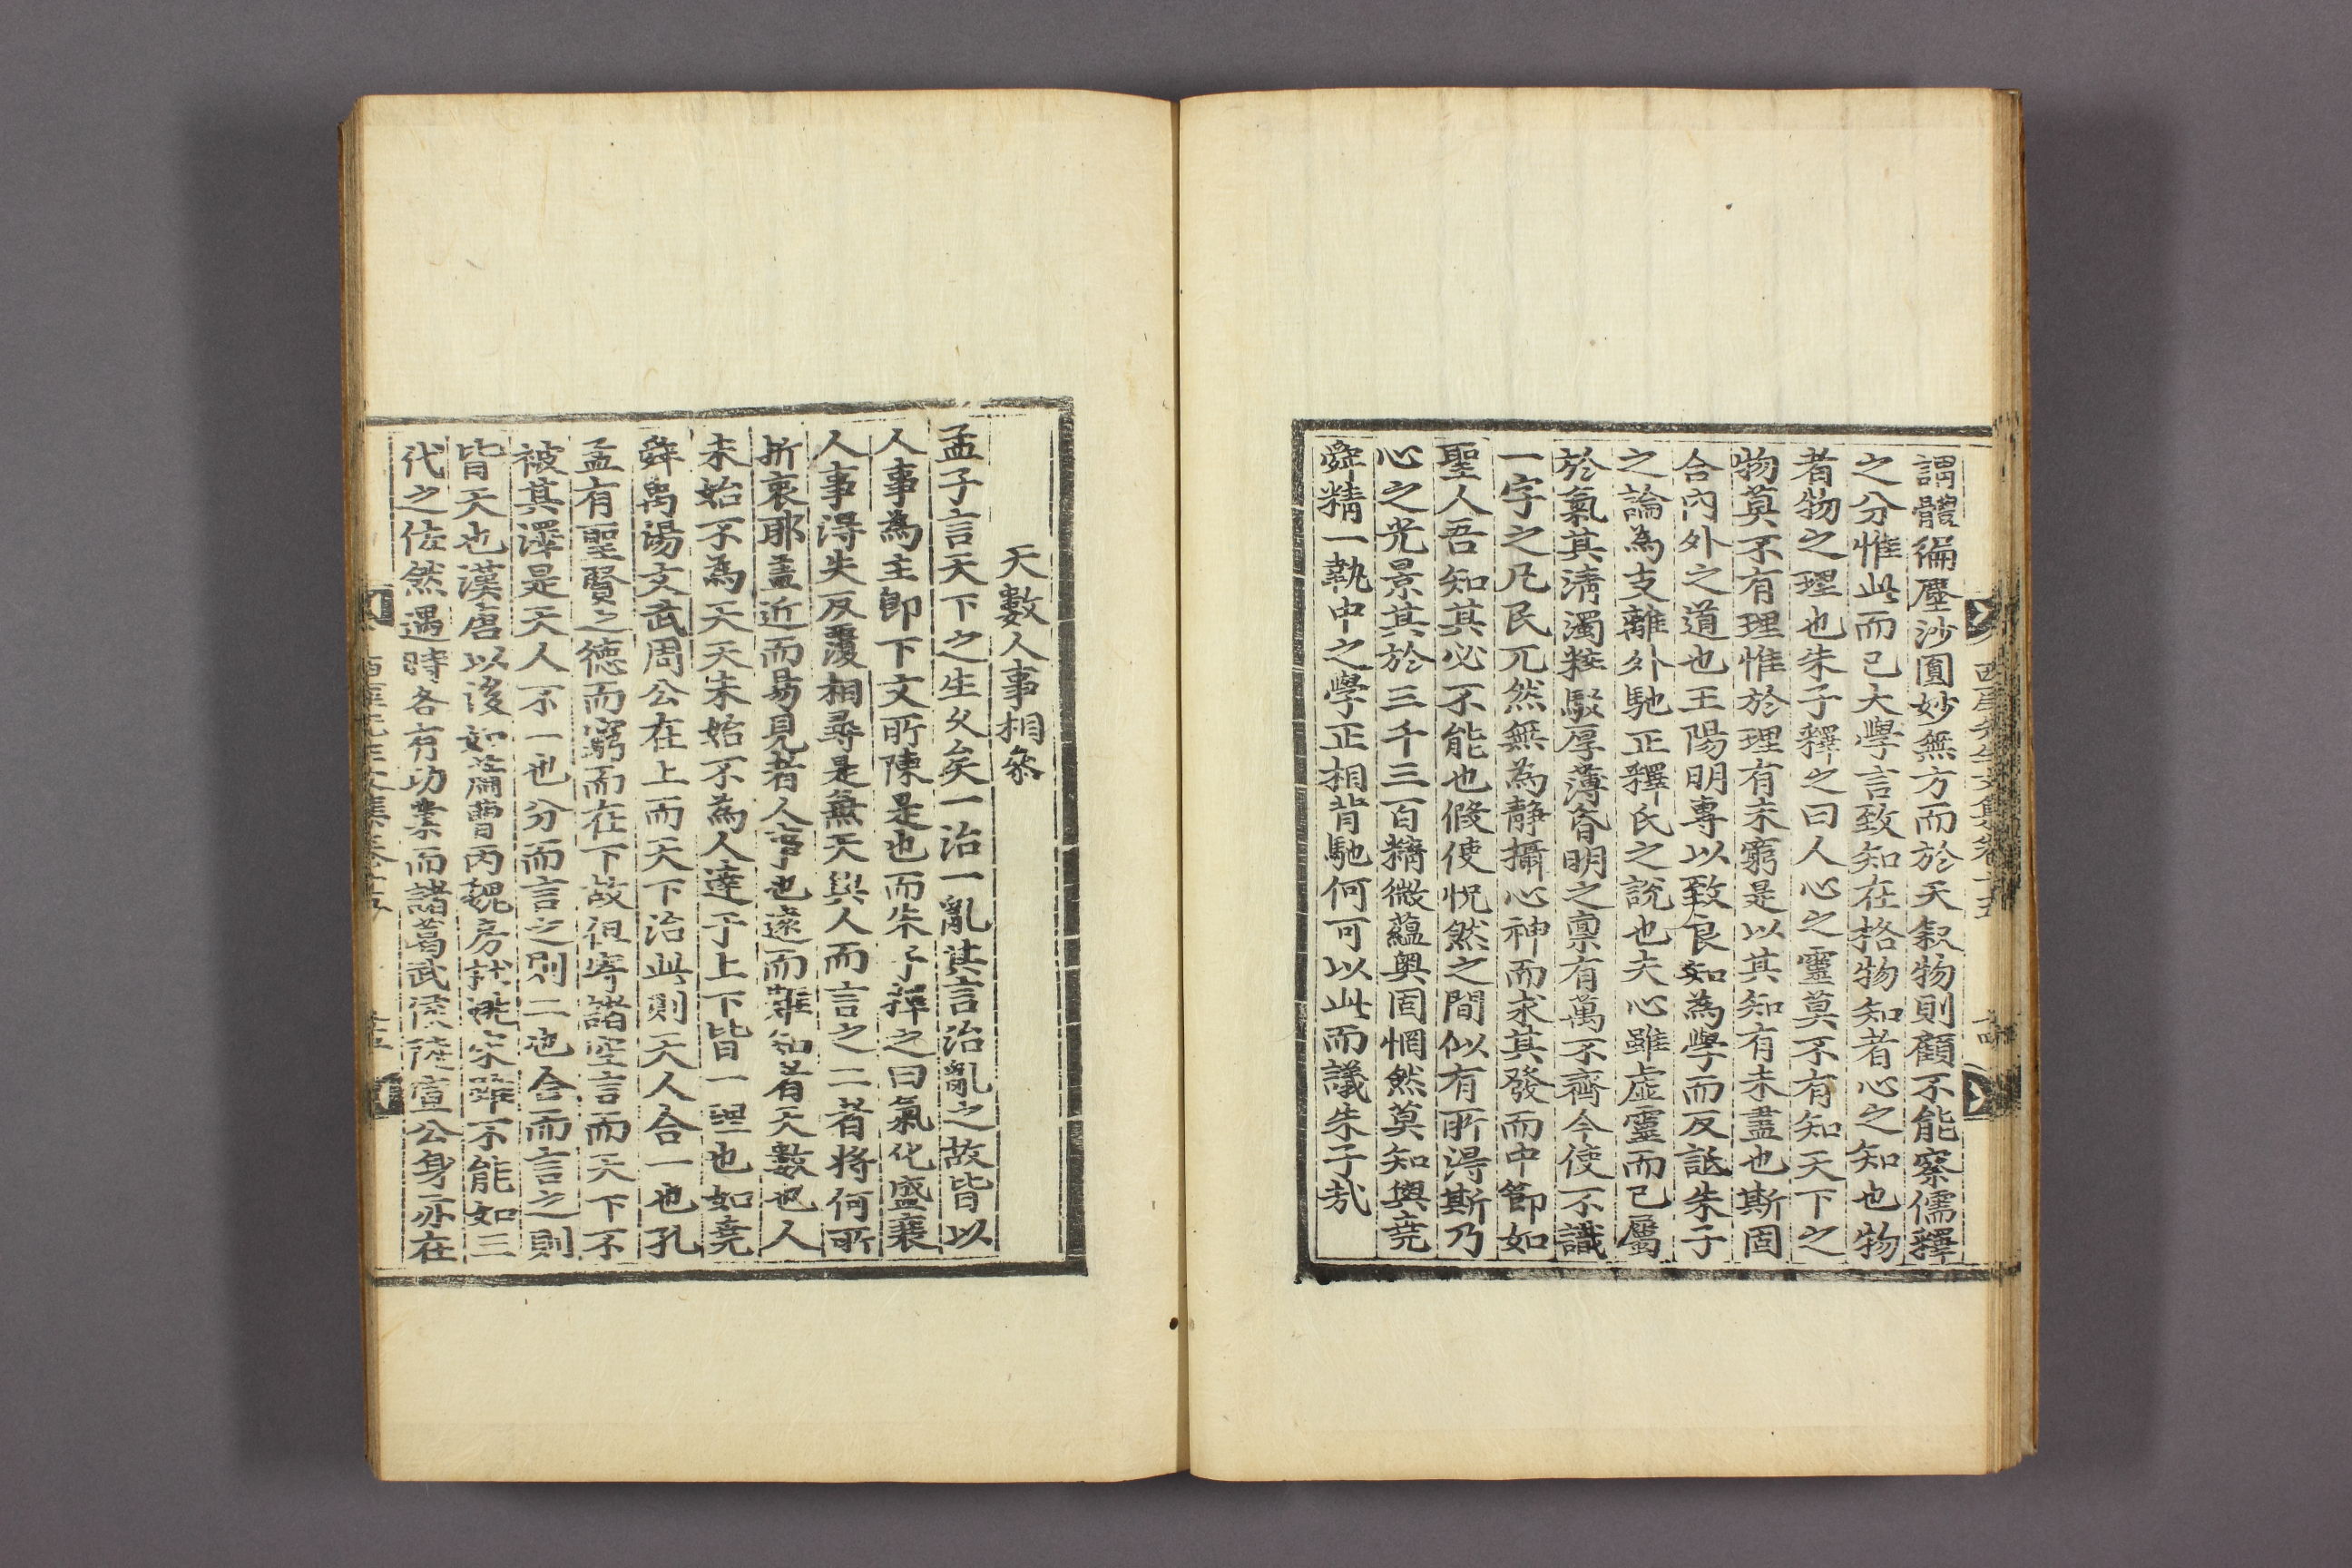 西厓先生文集卷十五
十四
謂髓徧塵沙圓妙無方而於天敍物則顧不能察儒釋
之分惟此而已大學言致知在格物知者心之知也物
者物之理也朱子釋之曰人心之靈莫不有知天下之
物莫不有理惟於理有未窮是以其知有未盡也斯固
合內外之道也王陽明專以致良知為學而反詆朱子
之論為支離外馳正釋氏之說也夫心雖虛靈而已屬
於氣其淸濁粹駁厚薄昏明之稟有萬不齊今使不識
一字之凡民兀然無為靜攝心神而求其發而中節如
聖人吾知其必不能也假使怳然之間似有所得斯乃
心之光景其於三千三百精微蘊奧固惘然莫知與堯
舜精一執中之學正相背馳何可以此而議朱子哉
天數人事相參
孟子言天下之生久矣一治一亂其言治亂之故皆以
人事為主卽下文所陳是也而朱子釋之曰氣化盛衰
人事得失反覆相尋是無天與人而言之二者將何所
折衷耶盖近而易見者人事也遠而難知者天數也人
未始不為天天未始不為人達乎上下皆一理也如堯
舜禹湯文武周公在上而天下治此則天人合一也孔
孟有聖賢之德而窮而在下故徂寄諸空言而天下不
被其澤是天人不一也分而言之則二也合而言之則
皆天也漢唐以後如蕭曹丙魏房杜姚宋雖不能如三
代之佐然遇時各有功業而諸葛武侯陸宣公身亦在